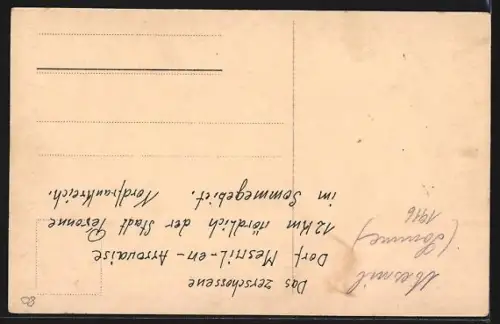 Das zerschossene
Dorf Mesnil-en-Arrouaise
12 Km nördlich der Stadt Peronne
im Sommegebiet.
Nordfrankreich.
Mesnil
(Somme)
1916